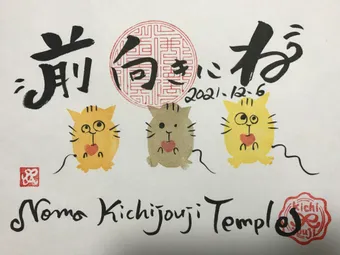 前向きにね
2021-12-6
Noma Kichijouji Temples
kichi